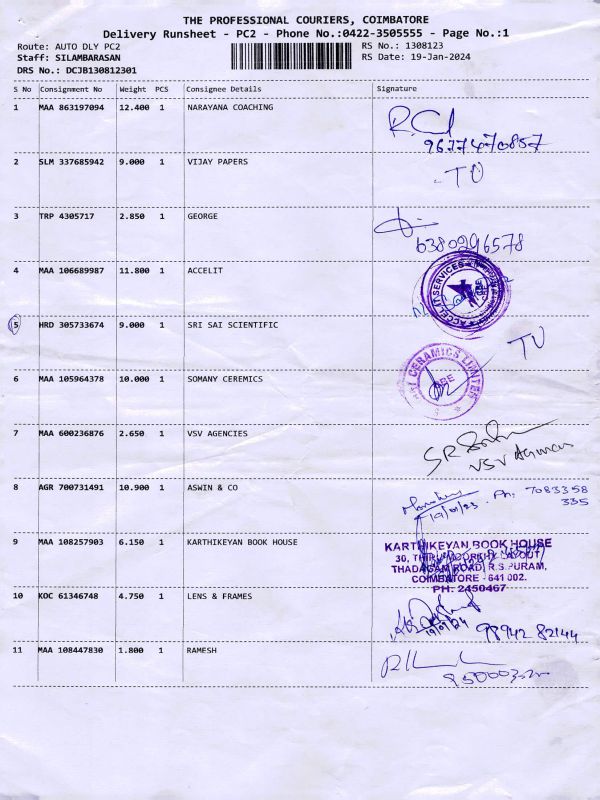 THE PROFESSIONAL COURIERS, COIMBATORE
Delivery Runsheet - PC2 - Phone No.:0422-3505555 - Page No.:1
Route: AUTO DLY PC2 RS No.: 1308123
Staff: SILAMBARASAN RS Date: 19-Jan-2024
DRS No.: DCJB130812301
S No Consignment No Weight PCS Consignee Details Signature
1 MAA 863197094 12.400 1 NARAYANA COACHING
9677470857
2 SLM 337685942 9.000 1 VIJAY PAPERS
3 TRP 4305717 2.850 1 GEORGE
6380296578
4 MAA 106689987 11.800 1 ACCELIT
ACCELIT SERVICES
5 HRD 305733674 9.000 1 SRI SAI SCIENTIFIC
6 MAA 105964378 10.000 1 SOMANY CEREMICS
CERAMICS LIMITED
7 MAA 600236876 2.650 1 VSV AGENCIES
VSV
8 AGR 700731491 10.900 1 ASWIN & CO
Ph: 7083358
335
9 MAA 108257903 6.150 1 KARTHIKEYAN BOOK HOUSE
KARTHIKEYAN BOOK HOUSE
30, THIRUMOORTHY LAYOUT
THADAGAM ROAD, R.S.PURAM,
COIMBATORE - 641 002.
PH: 2450467
10 KOC 61346748 4.750 1 LENS & FRAMES
19/01/24 98942 82144
11 MAA 108447830 1.800 1 RAMESH